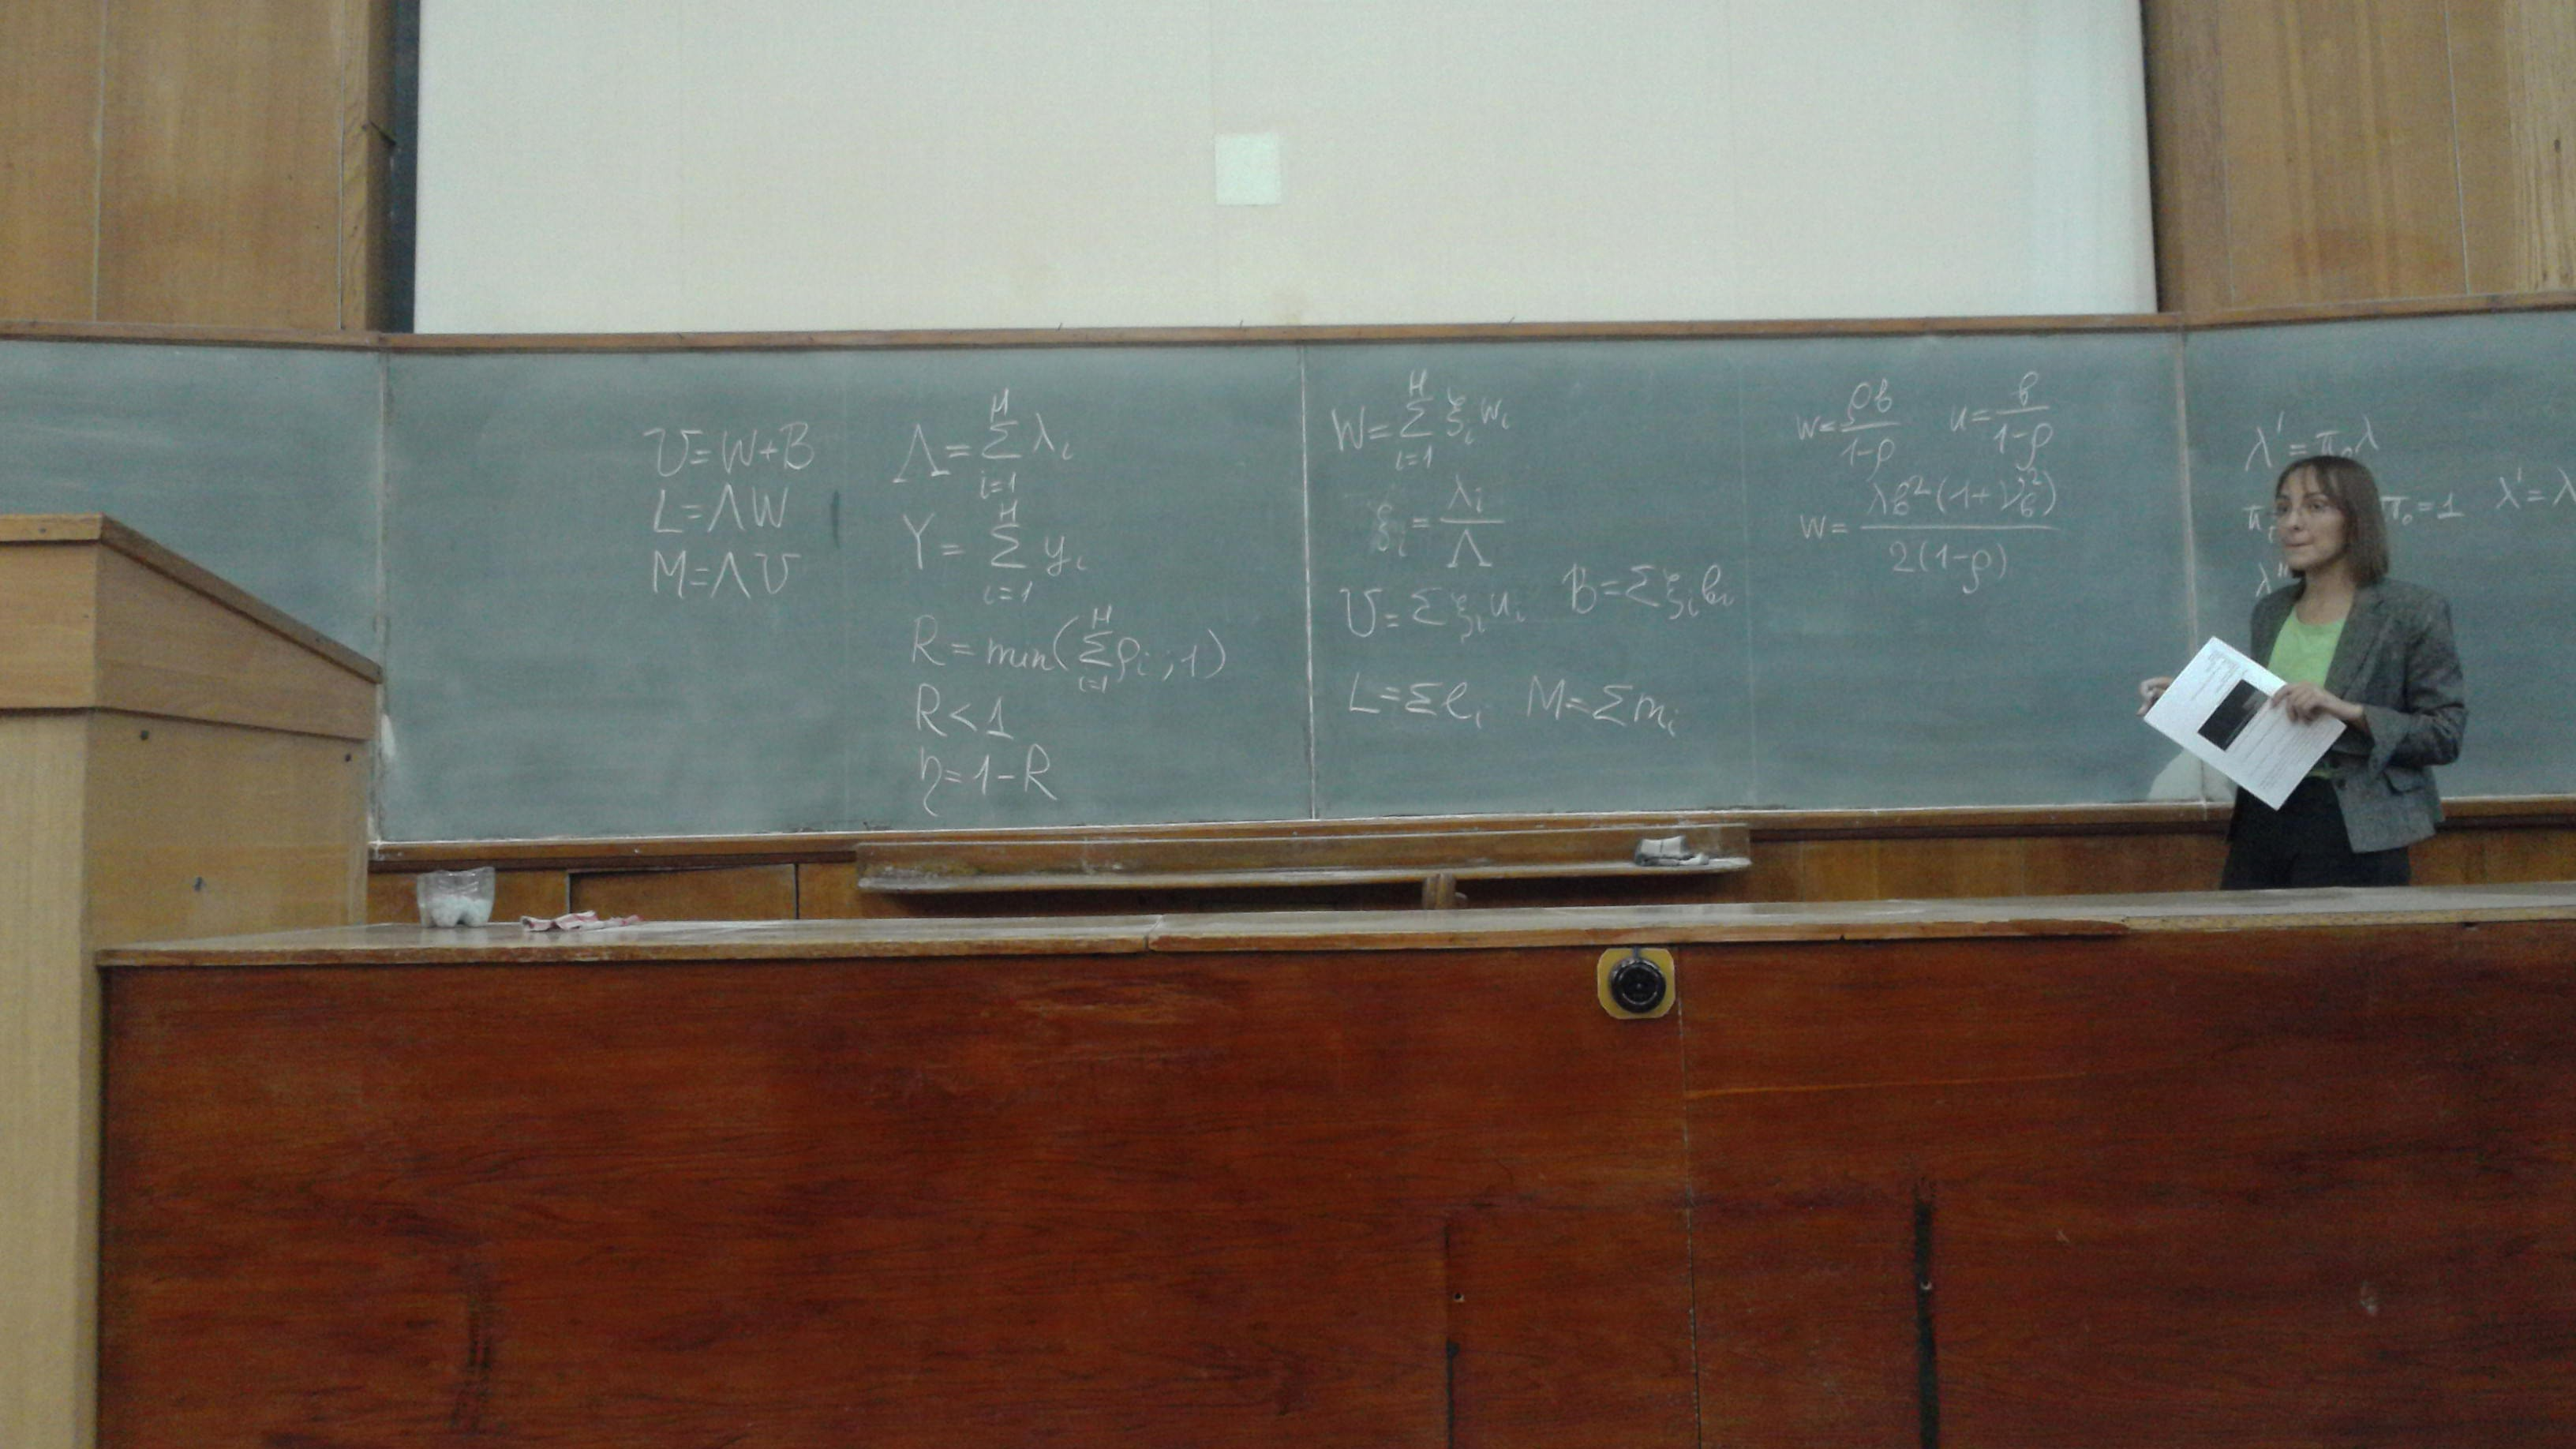 U=W+B
L=ΛW
M=ΛU
Λ=∑_{i=1}^{H} λ_i
Y=∑_{i=1}^{H} y_i
R=min(∑_{i=1}^{H} ρ_i ; 1)
R<1
η=1-R
W=∑_{i=1}^{H} ξ_i w_i
ξ_i=λ_i/Λ
U=∑ξ_i u_i B=∑ξ_i в_i
L=∑l_i M=∑m_i
w=ρв/(1-ρ) u=в/(1-ρ)
w=λв²(1+ν_в²)/(2(1-ρ))
λ'=π_0 λ
π_0=1 λ'=λ